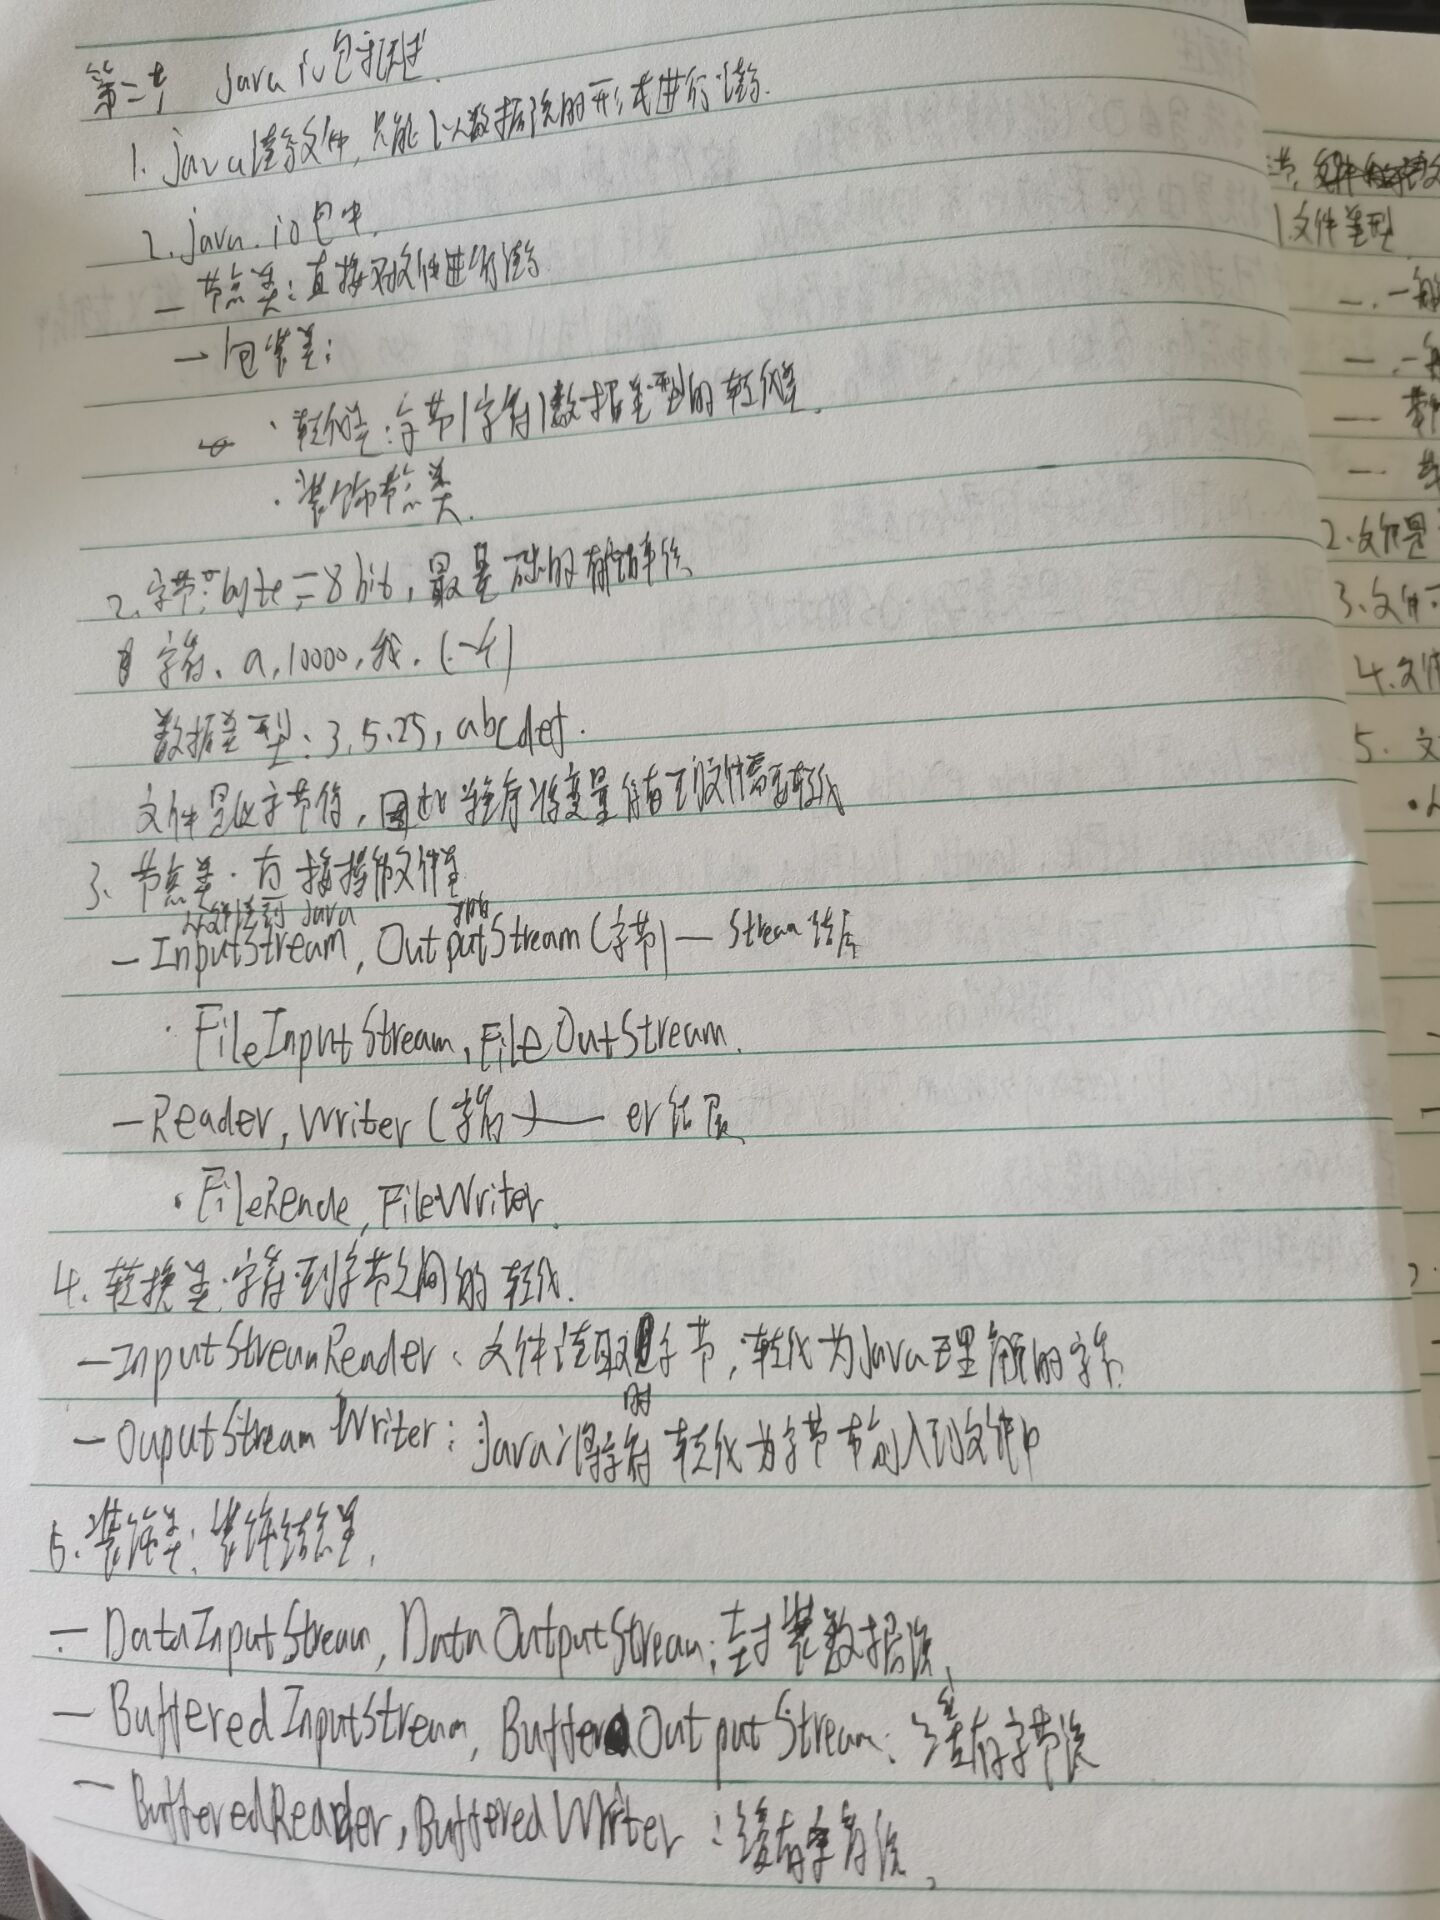 第二节 java io包概述.
1. java读写文件, 只能以数据流的形式进行读写.
2. java.io包中.
— 节点类: 直接对文件进行读写
— 包装类:
· 转化类: 字节/字符/数据类型的转化类.
· 装饰节点类.
2. 字节: byte = 8 bit, 最基础的存储单位
字符. a, 10000, 我, (一个)
数据类型: 3, 5.25, abcdef.
文件是以字节存, 因此变量存到文件需要转化
3. 节点类. 直接操作文件类
从文件读到 java
— InputStream, OutputStream (字节) — Stream 结尾
· FileInputStream, FileOutStream.
— Reader, Writer (字符) — er 结尾
· FileReade, FileWriter.
4. 转换类: 字符到字节之间的转化.
— InputStreamReader: 文件读取时字节, 转化为Java理解的字符
— OuputStream Writer: Java将字符转化为字节输入到文件中
5. 装饰类: 装饰结点类.
— DataInputStream, DataOutputStream: 封装数据流
— BufferedInputStream, BufferOutputStream: 缓存字节流
— BufferedReader, BufferedWriter: 缓存字符流.
1. 文件类型
2. 文件是
3. 文件
4. 文件
5. 文